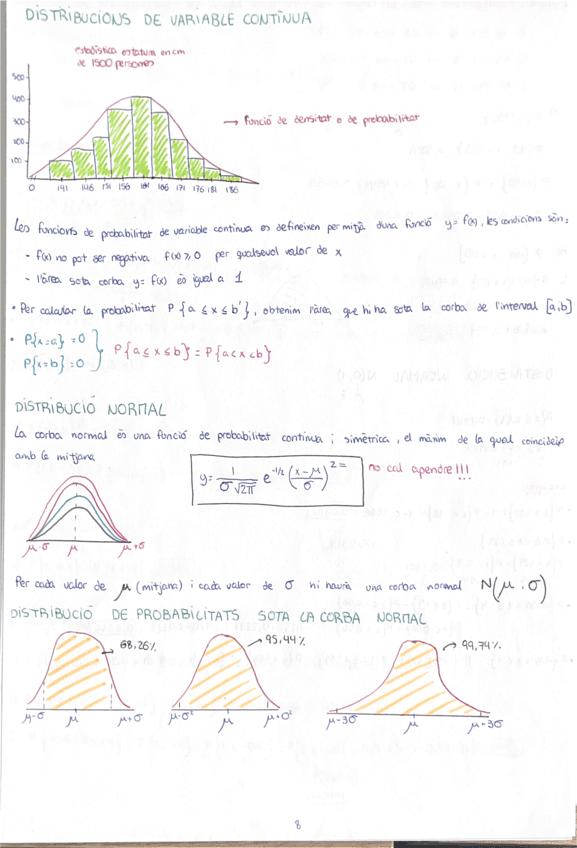 DISTRIBUCIONS DE VARIABLE CONTÍNUA
estadística estatura en cm
de 1500 persones
500
400
300
200
100
→ funció de densitat o de probabilitat
0 141 146 151 156 161 166 171 176 181 186
Les funcions de probabilitat de variable contínua es defineixen per mitjà d'una funció y = f(x), les condicions són:
- f(x) no pot ser negativa f(x) ≥ 0 per qualsevol valor de x
- l'àrea sota corba y = f(x) és igual a 1
• Per calcular la probabilitat P{a ≤ x ≤ b}, obtenim l'àrea, que hi ha sota la corba de l'interval [a,b]
• P{x=a} = 0
P{x=b} = 0
P{a ≤ x ≤ b} = P{a < x < b}
DISTRIBUCIÓ NORMAL
La corba normal és una funció de probabilitat contínua i simètrica, el màxim de la qual coincideix
amb la mitjana
y = 1/(σ√2π) e^-1/2 ((x-μ)/σ)^2 =
no cal apendre!!!
μ-σ μ μ+σ
Per cada valor de μ (mitjana) i cada valor de σ hi haurà una corba normal N(μ,σ)
DISTRIBUCIÓ DE PROBABILITATS SOTA LA CORBA NORMAL
→ 68,26%
→ 95,44%
→ 99,74%
μ-σ μ μ+σ
μ-σ² μ μ+σ²
μ-3σ μ μ+3σ
8